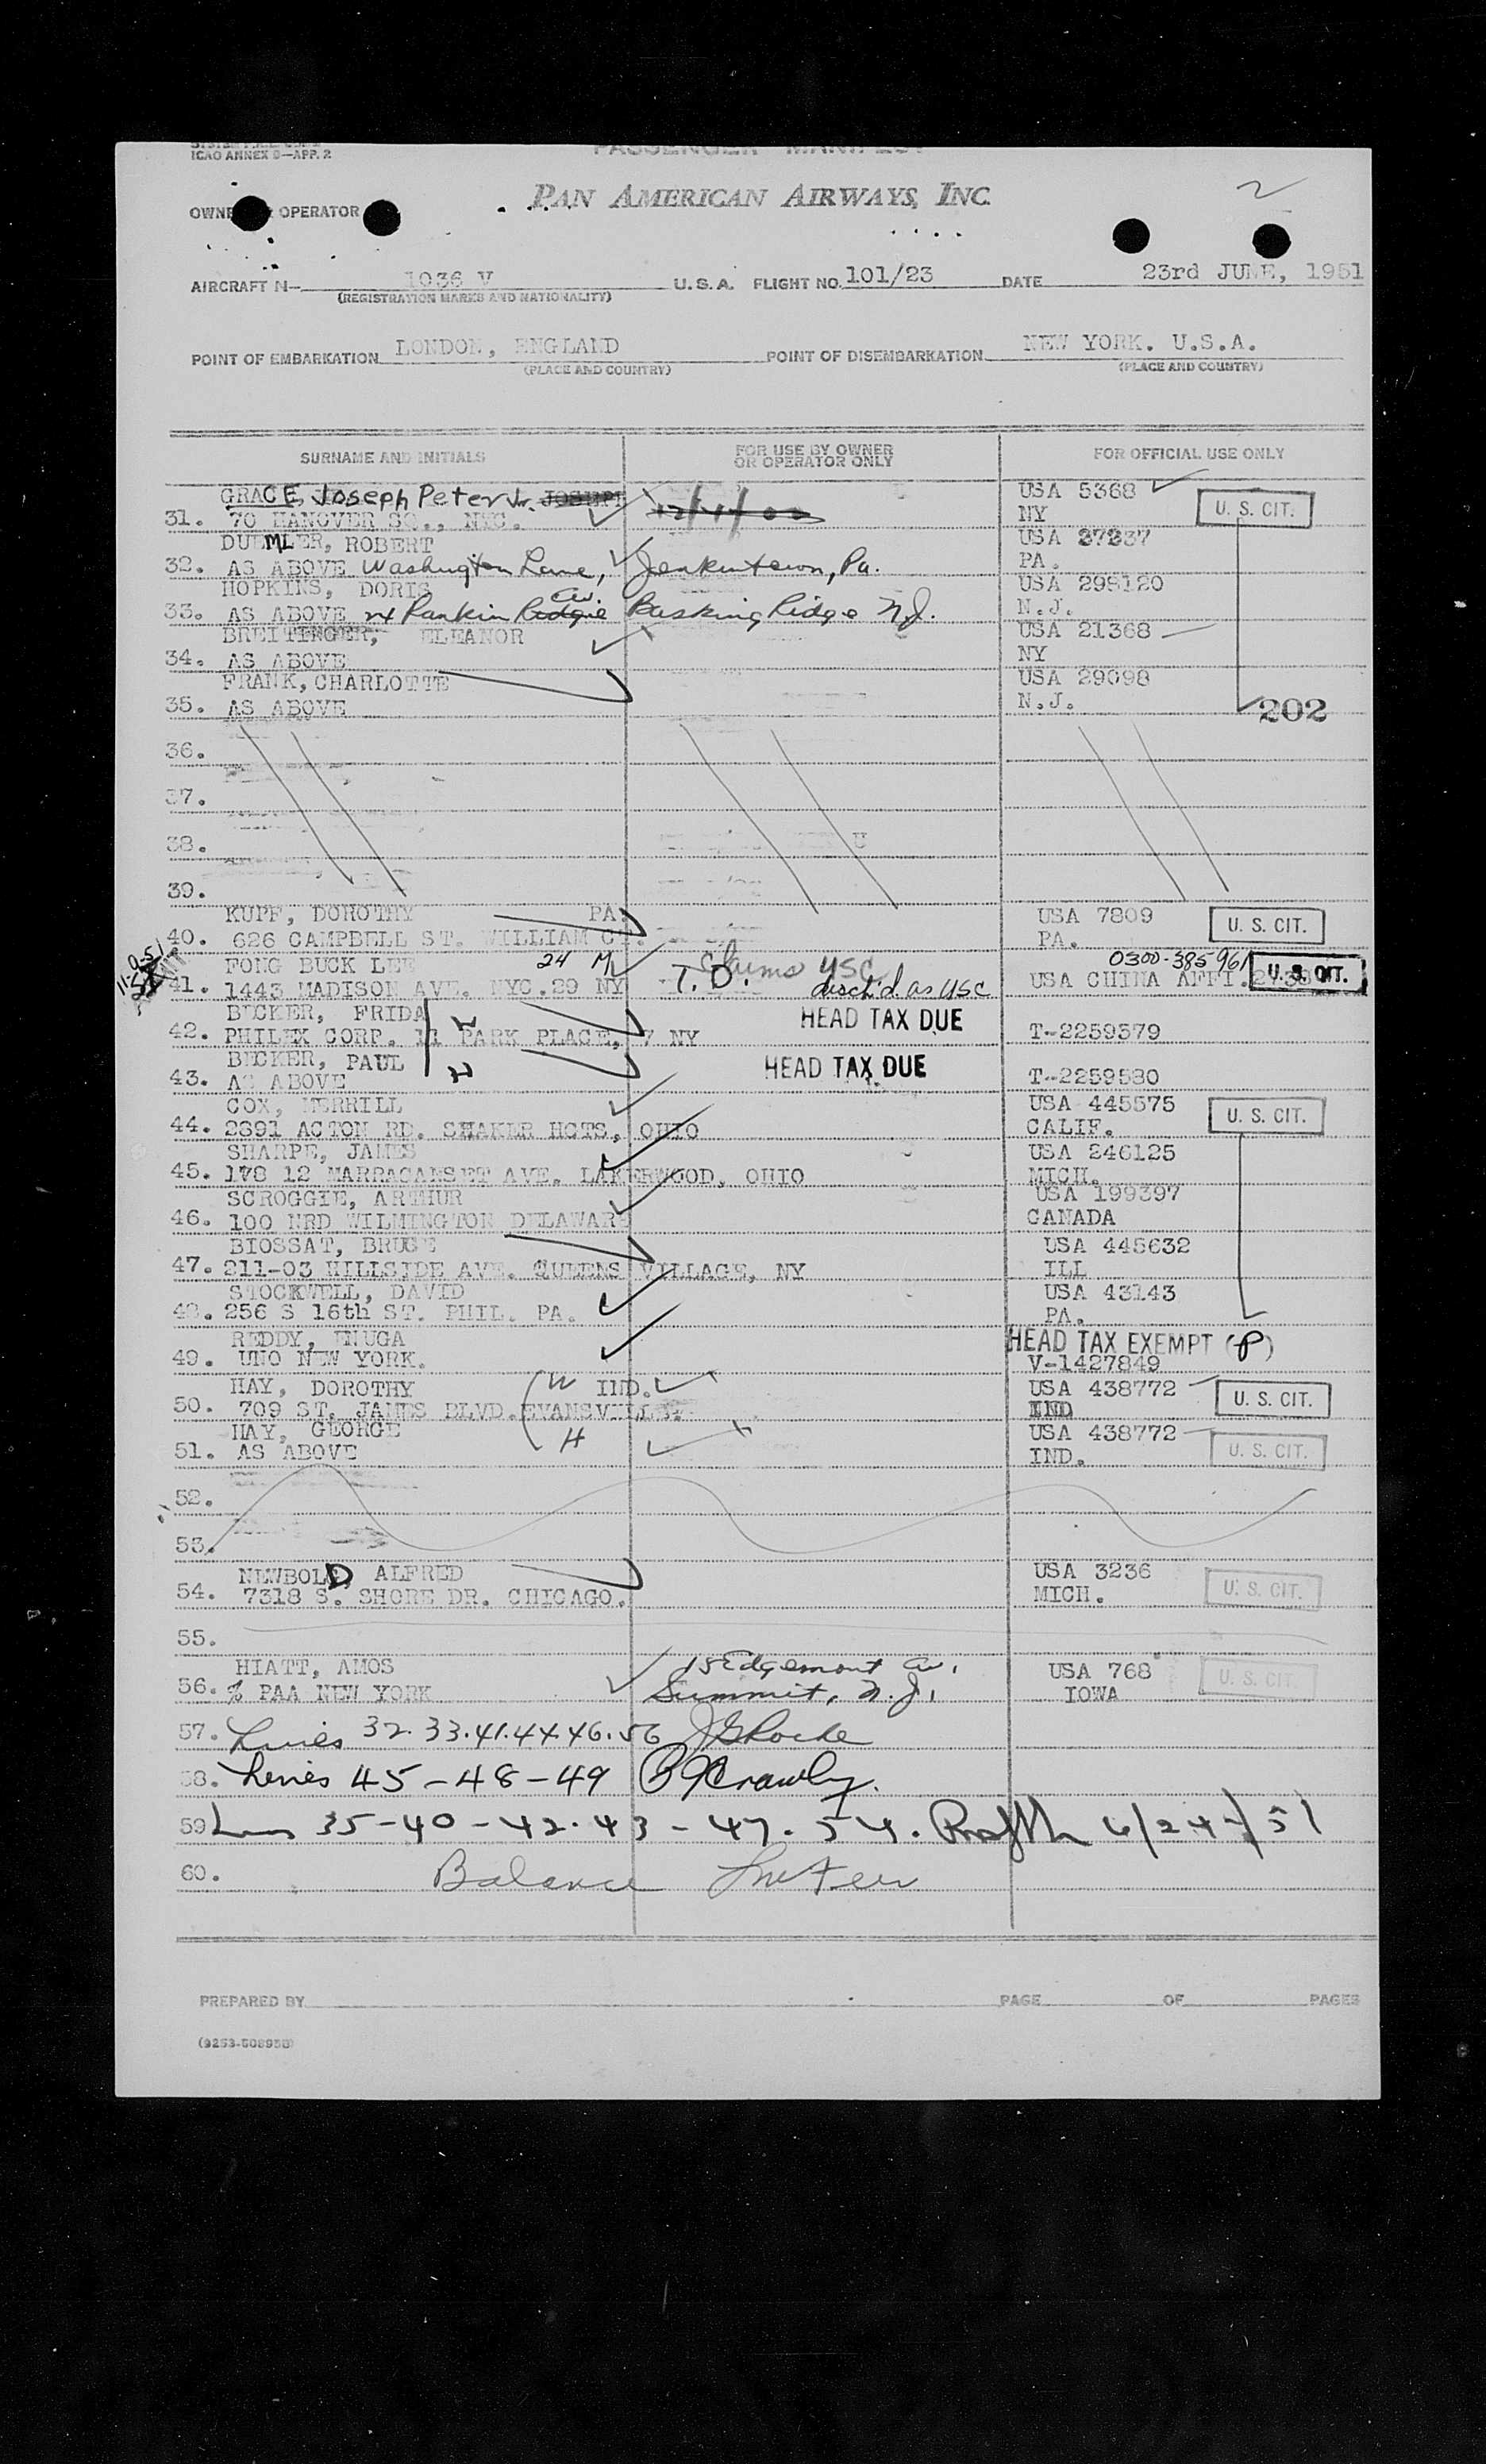 ICAO ANNEX 9—APP. 2
PASSENGER MANIFEST
PAN AMERICAN AIRWAYS, INC.
2
OPERATOR
AIRCRAFT N— 1036 V U.S.A. FLIGHT NO. 101/23 DATE 23rd JUNE, 1951
(REGISTRATION MARKS AND NATIONALITY)
POINT OF EMBARKATION LONDON, ENGLAND POINT OF DISEMBARKATION NEW YORK. U.S.A.
(PLACE AND COUNTRY) (PLACE AND COUNTRY)
SURNAME AND INITIALS FOR USE BY OWNER OR OPERATOR ONLY FOR OFFICIAL USE ONLY
GRACE, Joseph Peter Jr. JOSEPH USA 5368
31. 70 HANOVER SQ., NYC. NY U. S. CIT.
DUEMLER, ROBERT USA 27237
32. AS ABOVE Washington Lane, Jenkintown, Pa. PA.
HOPKINS, DORIS USA 298120
33. AS ABOVE 24 Rankin Ridgie Av. Basking Ridge N.J. N.J.
BREITINGER, ELEANOR USA 21368
34. AS ABOVE NY
FRANK, CHARLOTTE USA 29098
35. AS ABOVE N.J. 202
36.
37.
38. U
39.
KUPF, DOROTHY PA. USA 7809
40. 626 CAMPBELL ST. WILLIAM CT. PA. U. S. CIT.
FONG BUCK LEE 24 M Claims USC 0300-385961
41. 1443 MADISON AVE. NYC. 29 NY T.D. disch'd as USC USA CHINA AFFI. U. S. CIT.
BECKER, FRIDA W HEAD TAX DUE
42. PHILEX CORP. 11 PARK PLACE, 7 NY T-2259579
BECKER, PAUL H HEAD TAX DUE
43. AS ABOVE T-2259580
COX, MERRILL USA 445575
44. 2891 ACTON RD. SHAKER HGTS., OHIO CALIF. U. S. CIT.
SHARPE, JAMES USA 246125
45. 178 12 MARRAGANSET AVE. LAKERWOOD, OHIO MICH.
SCROGGIE, ARTHUR USA 199397
46. 100 NRD WILMINGTON DELAWARE CANADA
BIOSSAT, BRUCE USA 445632
47. 211-03 HILLSIDE AVE. QUEENS VILLAGE, NY ILL
STOCKWELL, DAVID USA 43143
48. 256 S 16th ST. PHIL. PA. PA.
REDDY, ENUGA HEAD TAX EXEMPT (P)
49. UNO NEW YORK. V-1427849
HAY, DOROTHY W IND. USA 438772
50. 709 ST. JAMES BLVD. EVANSVILLE. IND U. S. CIT.
HAY, GEORGE H USA 438772
51. AS ABOVE IND. U. S. CIT.
52.
53.
NEWBOLD, ALFRED USA 3236
54. 7318 S. SHORE DR. CHICAGO. MICH. U. S. CIT.
55.
HIATT, AMOS 15 Edgemont Av. USA 768
56. % PAA NEW YORK Summit, N.J. IOWA U. S. CIT.
57. Lines 32.33.41.44.46.56
58. Lines 45-48-49
59 Lines 35-40-42.43-47.54. 6/24/51
60. Balance
PREPARED BY PAGE OF PAGES